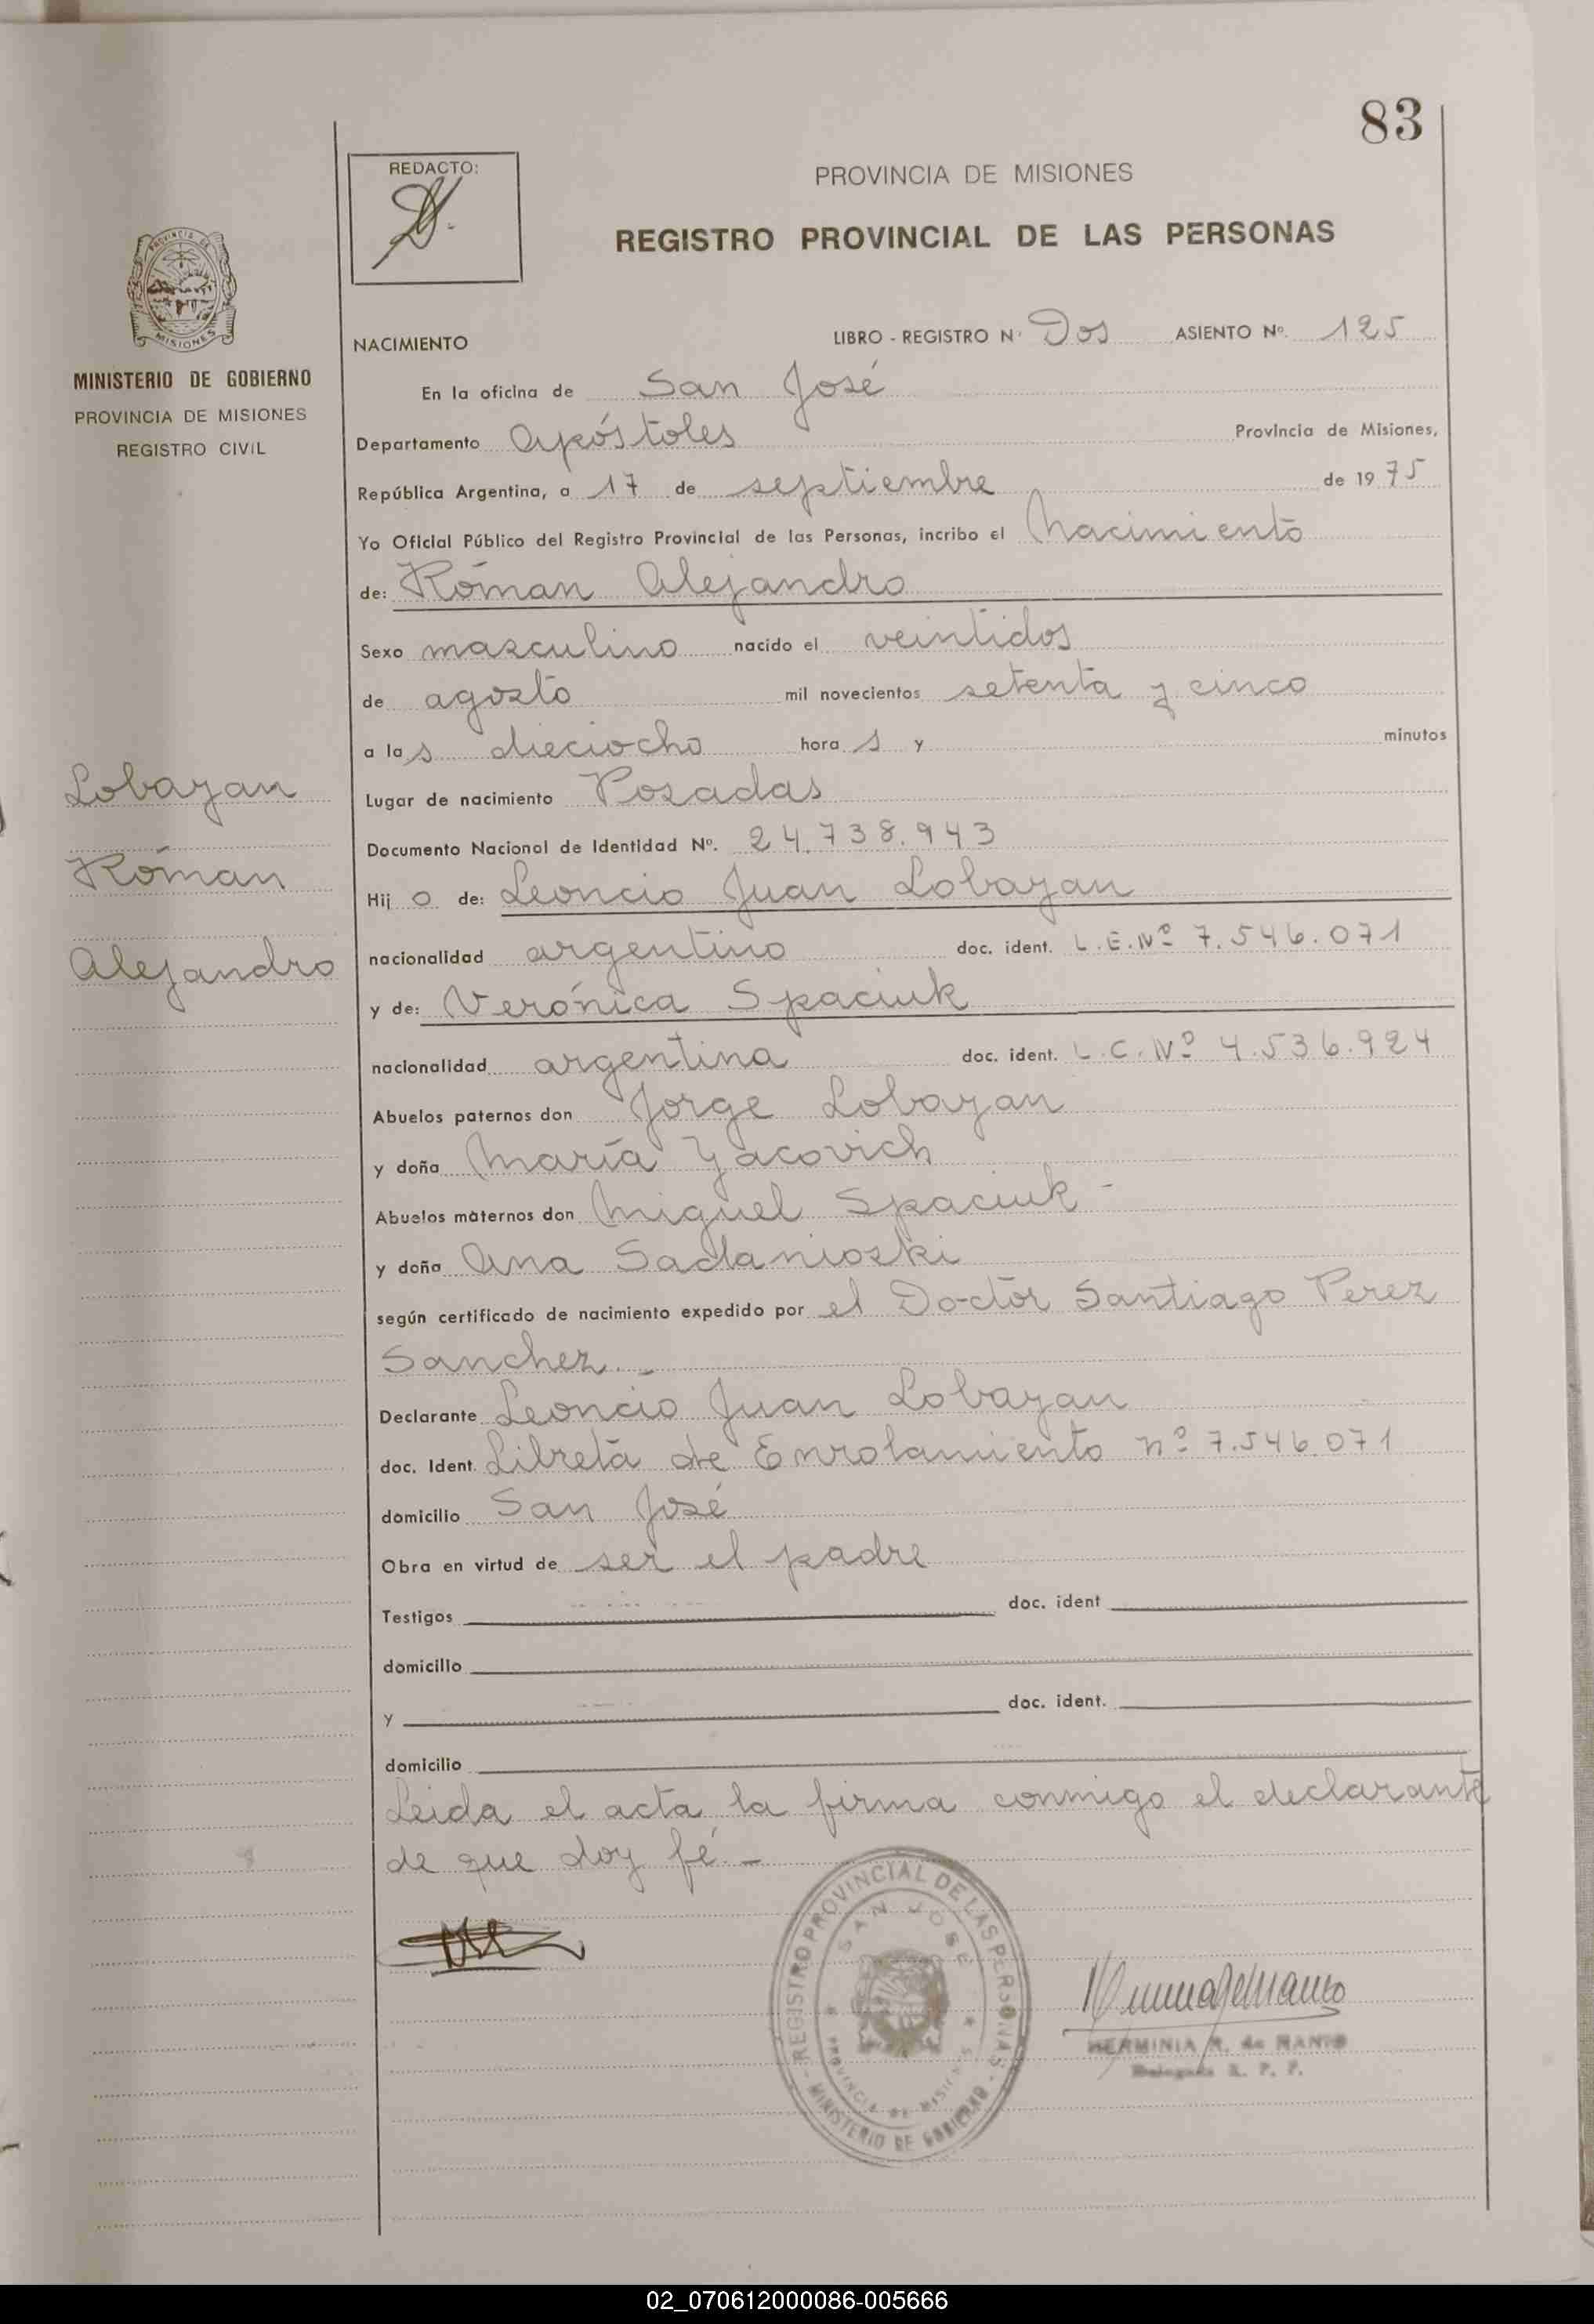 83
REDACTO:
PROVINCIA DE MISIONES
REGISTRO PROVINCIAL DE LAS PERSONAS
PROVINCIA DE
MISIONES
MINISTERIO DE GOBIERNO
PROVINCIA DE MISIONES
REGISTRO CIVIL
NACIMIENTO LIBRO - REGISTRO N· Dos ASIENTO Nº. 125
En la oficina de San José
Departamento Apóstoles Provincia de Misiones,
República Argentina, a 17 de septiembre de 1975
Yo Oficial Público del Registro Provincial de las Personas, incribo el Nacimiento
de: Róman Alejandro
Sexo masculino nacido el veintidos
de agosto mil novecientos setenta y cinco
a las dieciocho horas y minutos
Lobayan
Róman
Alejandro
Lugar de nacimiento Posadas
Documento Nacional de Identidad Nº. 24.738.943
Hijo de: Leoncio Juan Lobayan
nacionalidad argentino doc. ident. L.E.Nº 7.546.071
y de: Verónica Spaciuk
nacionalidad argentina doc. ident. L.C.Nº 4.536.924
Abuelos paternos don Jorge Lobayan
y doña María Yacovich
Abuelos maternos don Miguel Spaciuk -
y doña Ana Sadanioski
según certificado de nacimiento expedido por el Doctor Santiago Perez
Sanchez. -
Declarante Leoncio Juan Lobayan
doc. Ident. Libreta de Enrolamiento nº 7.546.071
domicilio San José
Obra en virtud de ser el padre
Testigos doc. ident
domicilio
y doc. ident.
domicilio
Leida el acta la firma conmigo el declarante
de que doy fé. -
REGISTRO PROVINCIAL DE LAS PERSONAS
SAN JOSE
PROVINCIA DE MISIONES
MINISTERIO DE GOBIERNO
HERMINIA R. de
Delegada R. P. P.
02_070612000086-005666